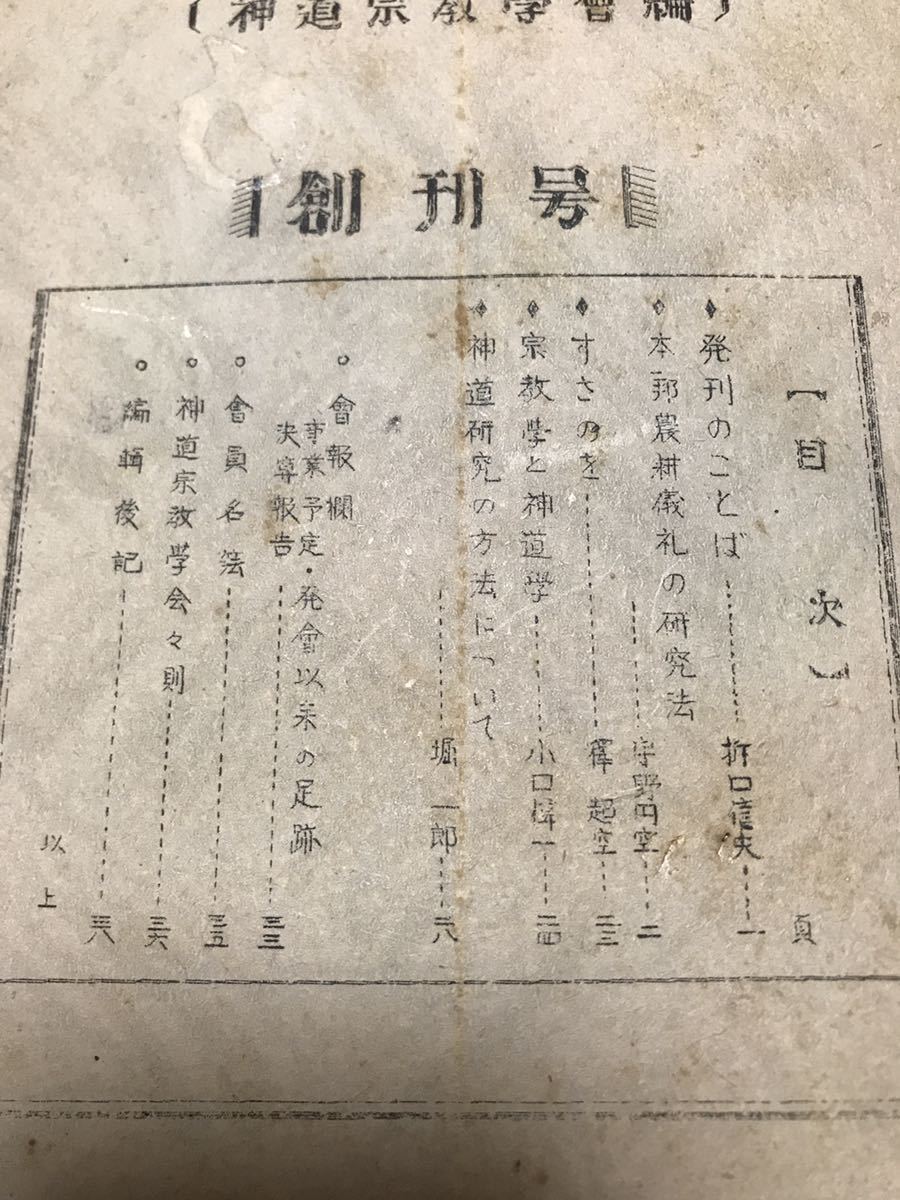 (神道宗教學會編)
創刊号
【目次】
頁
発刊のことば 折口信夫 一
本邦農耕儀礼の研究法
宇野円空 二
すさのを 釋超空 二三
宗教學と神道學 小口偉一 二四
神道研究の方法について
堀一郎 二八
會報欄
事業予定・発會以来の足跡
決算報告 三三
會員名簿 三五
神道宗教学会々則 三六
編輯後記 三八
以上